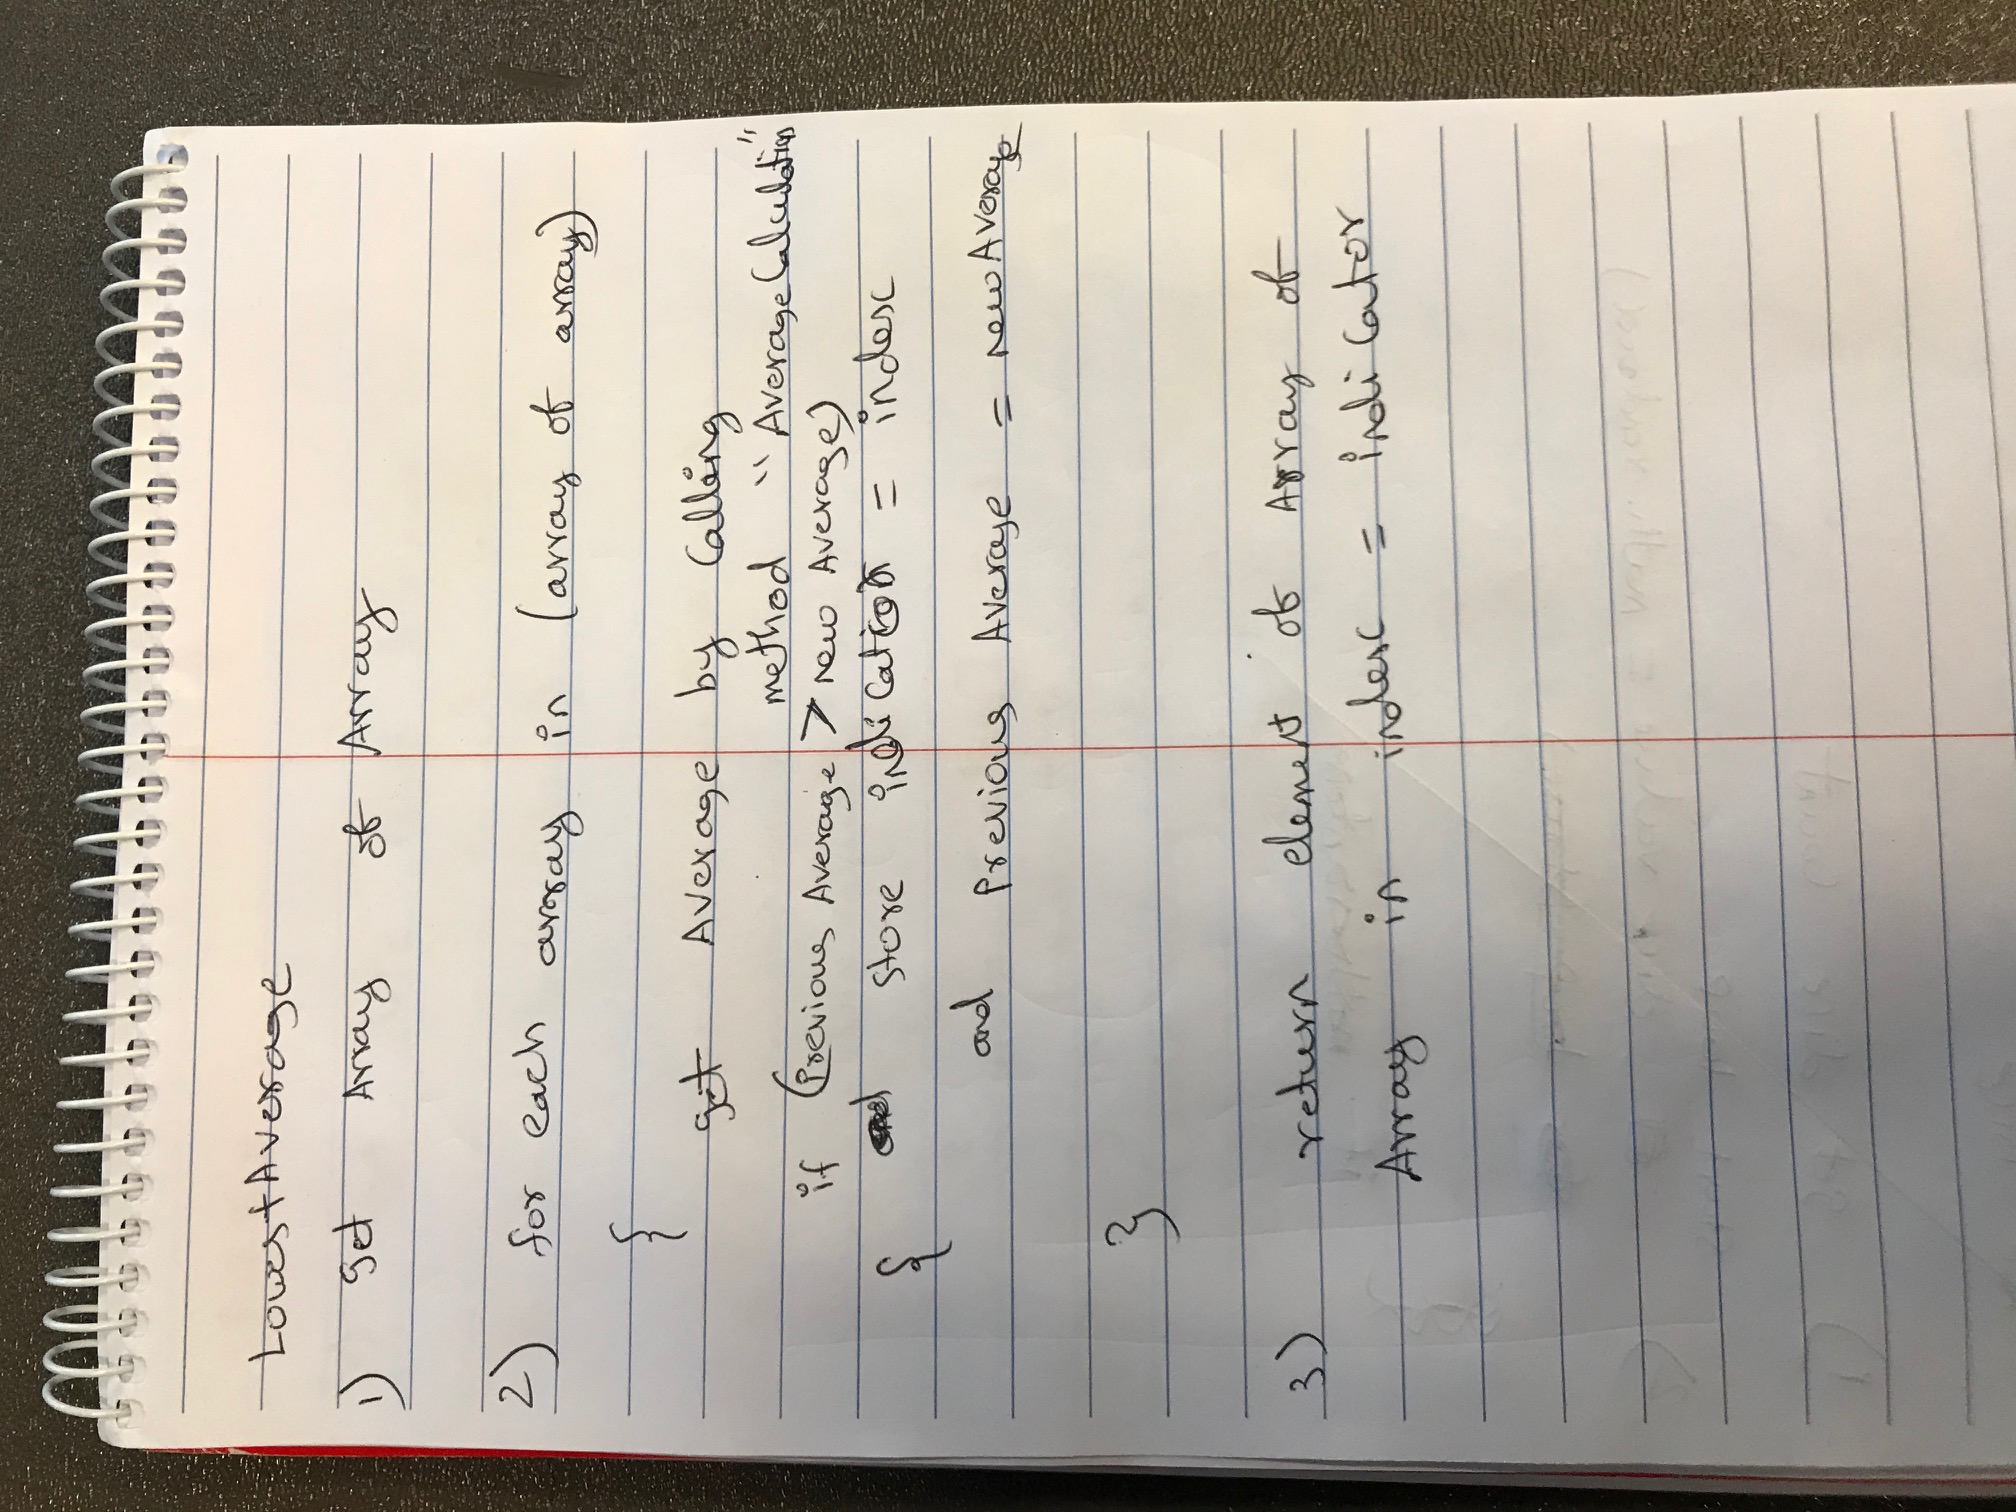 LowestAverage
1) get Array of Array
2) for each array in (array of array)
{
get Average by Calling
method "AverageCalculation"
if (Previous Average > new Average)
{ store indicator = index
and Previous Average = new Average
}
3) return element of Array of
Array in index = indicator